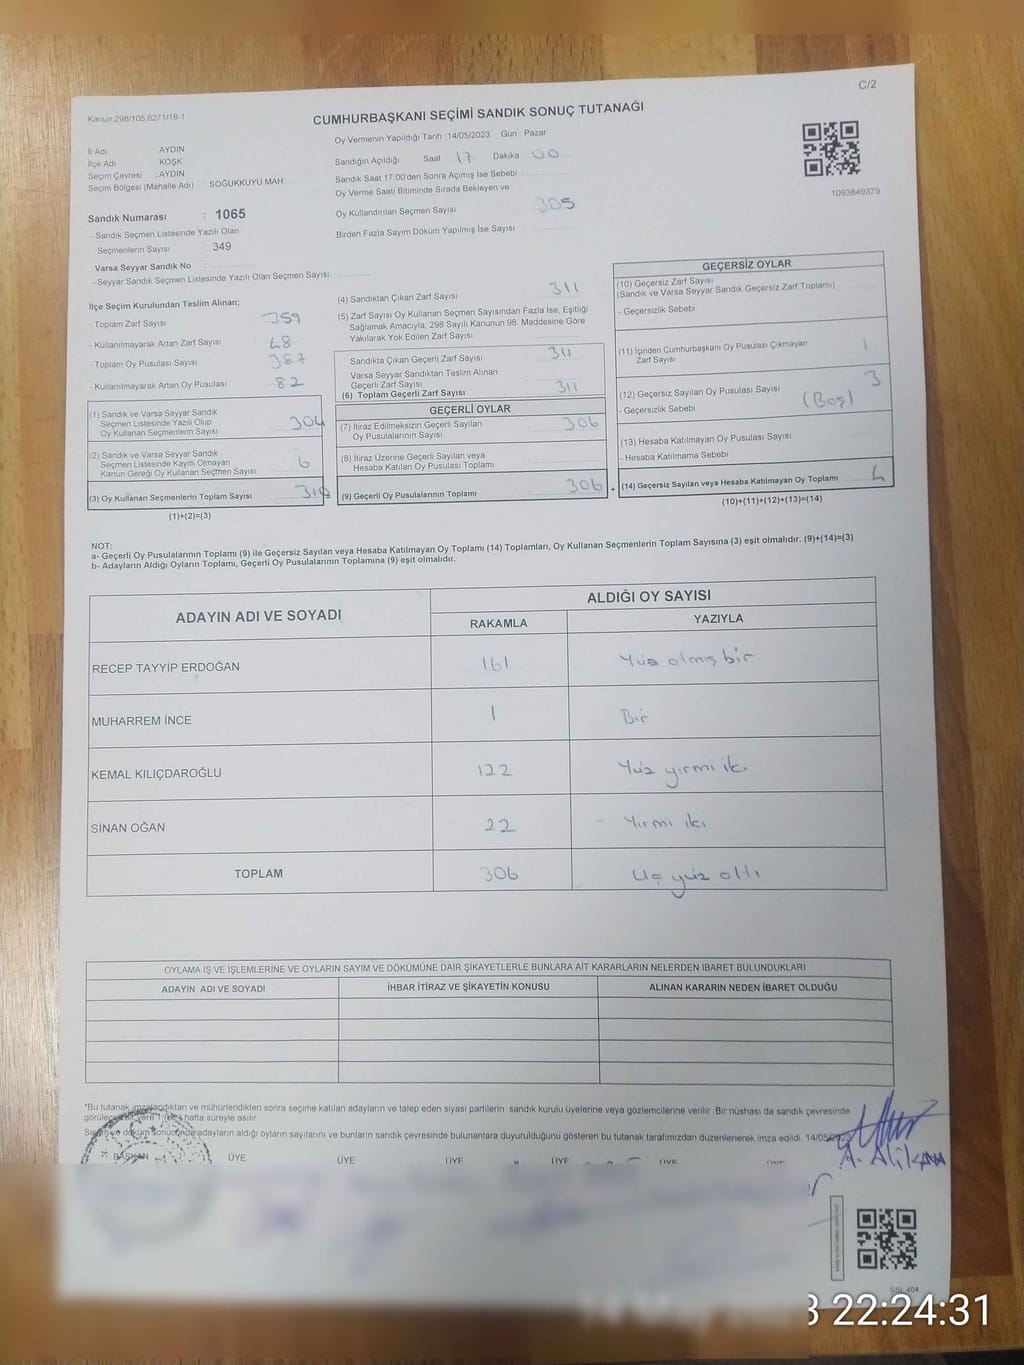 C/2
Kanun:298/105,6271/18-1
CUMHURBAŞKANI SEÇİMİ SANDIK SONUÇ TUTANAĞI
Oy Vermenin Yapıldığı Tarih : 14/05/2023 Gün : Pazar
İl Adı AYDIN
İlçe Adı KÖŞK
Seçim Çevresi : AYDIN
Seçim Bölgesi (Mahalle Adı) SOĞUKKUYU MAH.
Sandığın Açıldığı Saat 17 Dakika 00
Sandık Saat 17:00'den Sonra Açımış İse Sebebi
Oy Verme Saati Bitiminde Sırada Bekleyen ve
Oy Kullandırılan Seçmen Sayısı 305
Birden Fazla Sayım Döküm Yapılmış İse Sayısı
1093849379
Sandık Numarası : 1065
- Sandık Seçmen Listesinde Yazılı Olan
Seçmenlerin Sayısı : 349
Varsa Seyyar Sandık No :
- Seyyar Sandık Seçmen Listesinde Yazılı Olan Seçmen Sayısı:
İlçe Seçim Kurulundan Teslim Alınan;
- Toplam Zarf Sayısı 359
- Kullanılmayarak Artan Zarf Sayısı 48
- Toplam Oy Pusulası Sayısı 387
- Kullanılmayarak Artan Oy Pusulası 82
(1) Sandık ve Varsa Seyyar Sandık
Seçmen Listesinde Yazılı Olup
Oy Kullanan Seçmenlerin Sayısı 304
(2) Sandık ve Varsa Seyyar Sandık
Seçmen Listesinde Kayıtlı Olmayan
Kanun Gereği Oy Kullanan Seçmen Sayısı 6
(3) Oy Kullanan Seçmenlerin Toplam Sayısı 310
(1)+(2)=(3)
(4) Sandıktan Çıkan Zarf Sayısı 311
(5) Zarf Sayısı Oy Kullanan Seçmen Sayısından Fazla İse, Eşitliği
Sağlamak Amacıyla; 298 Sayılı Kanunun 98. Maddesine Göre
Yakılarak Yok Edilen Zarf Sayısı
Sandıkta Çıkan Geçerli Zarf Sayısı 311
Varsa Seyyar Sandıktan Teslim Alınan
Geçerli Zarf Sayısı
(6) Toplam Geçerli Zarf Sayısı 311
GEÇERLİ OYLAR
(7) İtiraz Edilmeksizin Geçerli Sayılan
Oy Pusulasının Sayısı 306
(8) İtiraz Üzerine Geçerli Sayılan veya
Hesaba Katılan Oy Pusulası Toplamı
(9) Geçerli Oy Pusulalarının Toplamı 306 +
GEÇERSİZ OYLAR
(10) Geçersiz Zarf Sayısı
(Sandık ve Varsa Seyyar Sandık Geçersiz Zarf Toplamı)
- Geçersizlik Sebebi
(11) İçinden Cumhurbaşkanı Oy Pusulası Çıkmayan
Zarf Sayısı 1
(12) Geçersiz Sayılan Oy Pusulası Sayısı 3
- Geçersizlik Sebebi (Boş)
(13) Hesaba Katılmayan Oy Pusulası Sayısı
- Hesaba Katılmama Sebebi
(14) Geçersiz Sayılan veya Hesaba Katılmayan Oy Toplamı 4
(10)+(11)+(12)+(13)=(14)
NOT:
a- Geçerli Oy Pusulalarının Toplamı (9) ile Geçersiz Sayılan veya Hesaba Katılmayan Oy Toplamı (14) Toplamları, Oy Kullanan Seçmenlerin Toplam Sayısına (3) eşit olmalıdır. (9)+(14)=(3)
b- Adayların Aldığı Oyların Toplamı, Geçerli Oy Pusulalarının Toplamına (9) eşit olmalıdır.
ADAYIN ADI VE SOYADI ALDIĞI OY SAYISI
RAKAMLA YAZIYLA
RECEP TAYYİP ERDOĞAN 161 Yüz altmış bir
MUHARREM İNCE 1 Bir
KEMAL KILIÇDAROĞLU 122 Yüz yirmi iki
SİNAN OĞAN 22 - Yirmi iki
TOPLAM 306 Üç yüz altı
OYLAMA İŞ VE İŞLEMLERİNE VE OYLARIN SAYIM VE DÖKÜMÜNE DAİR ŞİKAYETLERLE BUNLARA AİT KARARLARIN NELERDEN İBARET BULUNDUKLARI
ADAYIN ADI VE SOYADI İHBAR İTİRAZ VE ŞİKAYETİN KONUSU ALINAN KARARIN NEDEN İBARET OLDUĞU
*Bu tutanak imzalandıktan ve mühürlendikten sonra seçime katılan adayların ve talep eden siyasi partilerin sandık kurulu üyelerine veya gözlemcilerine verilir. Bir nüshası da sandık çevresinde
görülecek bir yere 1 hafta süreyle asılır.
Sayım ve döküm sonucunda adayların aldığı oyların sayılarını ve bunların sandık çevresinde bulunanlara duyurulduğunu gösteren bu tutanak tarafımızdan düzenlenerek imza edildi. 14/05/2023
BAŞKAN ÜYE ÜYE ÜYE ÜYE ÜYE ÜYE
22:24:31